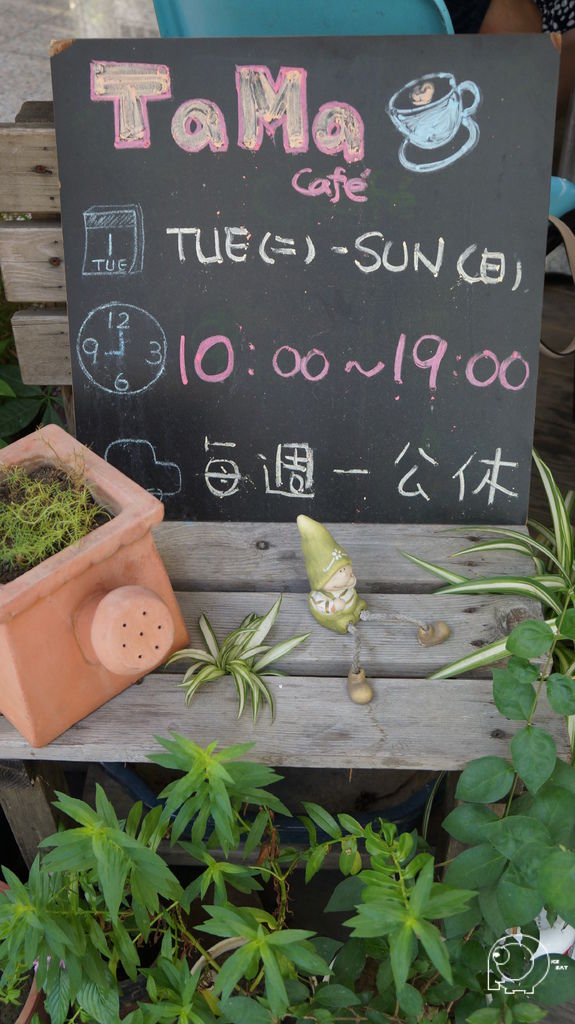 TaMa
Café
1
TUE
TUE(二)-SUN(日)
12
9 3
6
10:00~19:00
每週一公休
ICE
EAT